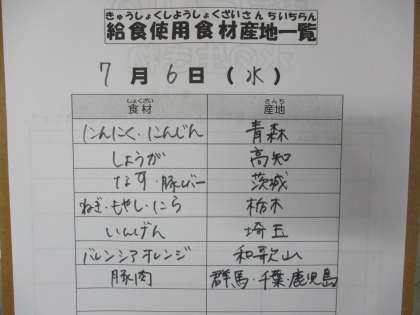 きゅうしょくしようしょくざいさんちいちらん
給食使用食材産地一覧
7月6日(水)
しょくざい さんち
食材 産地
にんにく・にんじん 青森
しょうが 高知
なす・豚レバー 茨城
ねぎ・もやし・にら 栃木
いんげん 埼玉
バレンシアオレンジ 和歌山
豚肉 群馬・千葉・鹿児島